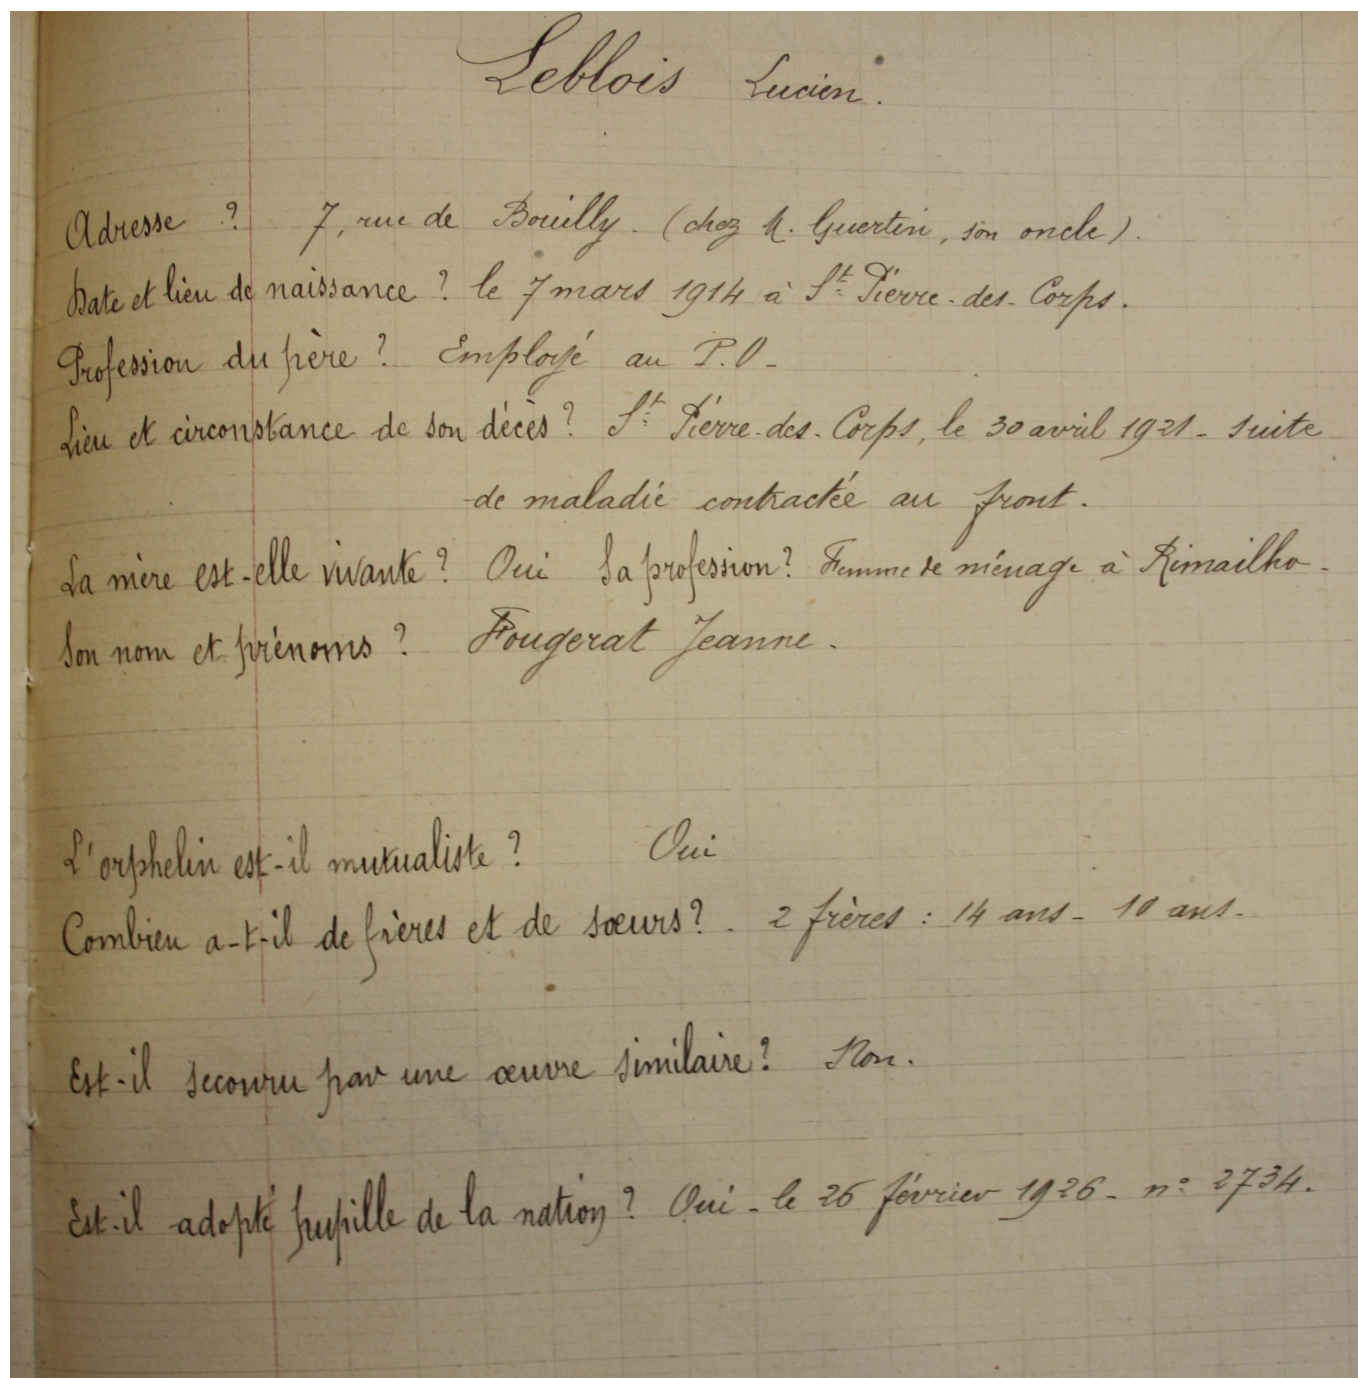 Leblois Lucien.
Adresse ? 7, rue de Bouilly. (chez M. Guertin, son oncle).
Date et lieu de naissance ? le 7 mars 1914 à St Pierre-des-Corps.
Profession du père ? Employé au P.O-
Lieu et circonstance de son décès ? St Pierre-des-Corps, le 30 avril 1921 - suite
de maladie contractée au front.
La mère est-elle vivante ? Oui Sa profession ? Femme de ménage à Rimailho-
Son nom et prénoms ? Fougerat Jeanne.
L'orphelin est-il mutualiste ? Oui
Combien a-t-il de frères et de sœurs ? . 2 frères : 14 ans - 10 ans-
Est-il secouru par une œuvre similaire ? Non.
Est-il adopté pupille de la nation ? Oui - le 26 février 1926 - n° 2734.